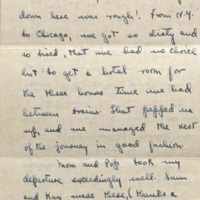 down here was rough! From N.Y.
to Chicago, we got so dirty and
so tired, that we had no choice
but to get a hotel room for
the three hours time we had
between trains. That pepped us
up, and we managed the rest
of the journey in good fashion.
Mom and Pop took my
departure exceedingly well. Sam
and Kay were there, thanks a